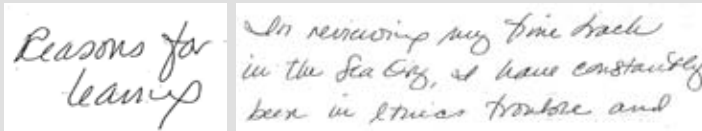 Reasons for
leaving
In reviewing my time track
in the Sea Org, I have constantly
been in ethics trouble and